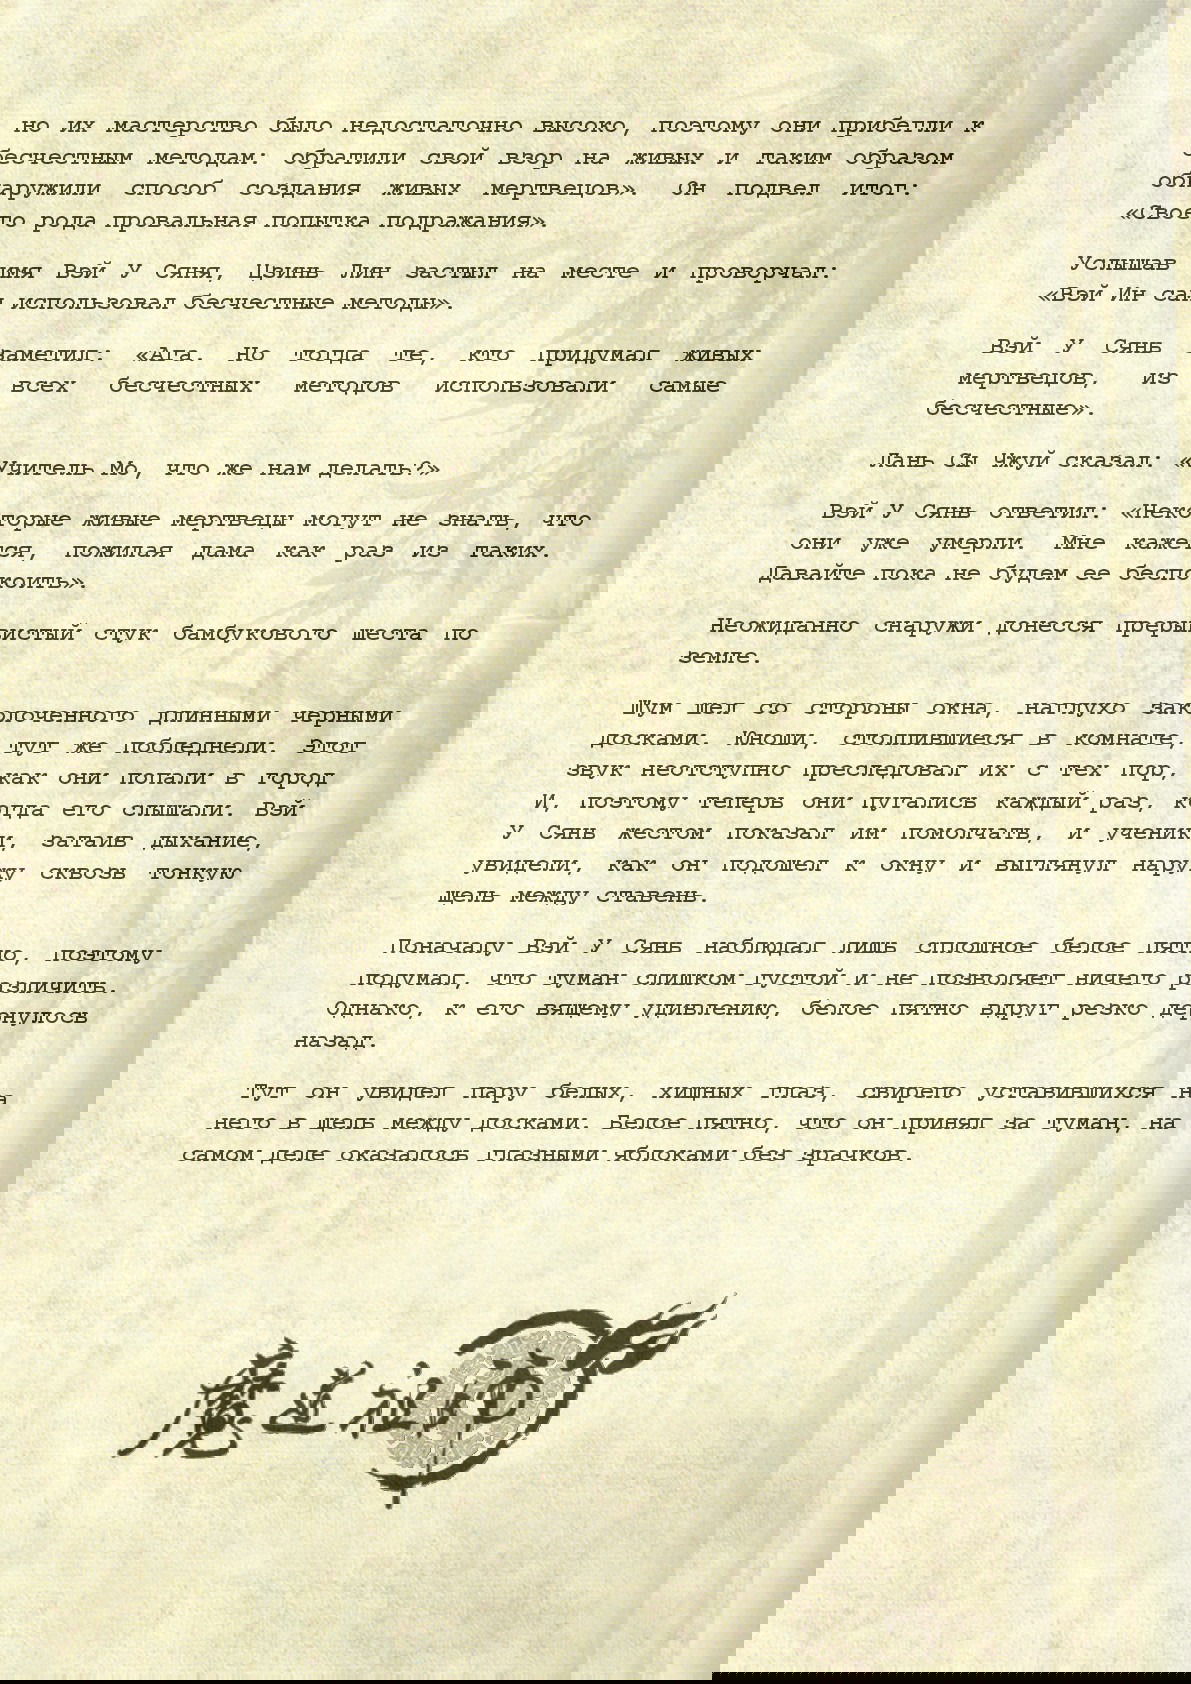 но их мастерство было недостаточно высоко, поэтому они прибегли к
бесчестным методам: обратили свой взор на живых и таким образом
обнаружили способ создания живых мертвецов». Он подвел итог:
«Своего рода провальная попытка подражания».
Услышав имя Вэй У Сяня, Цзинь Лин застыл на месте и проворчал:
«Вэй Ин сам использовал бесчестные методы».
Вэй У Сянь заметил: «Ага. Но тогда те, кто придумал живых
мертвецов, из всех бесчестных методов использовали самые
бесчестные».
Лань Сы Чжуй сказал: «Учитель Мо, что же нам делать?»
Вэй У Сянь ответил: «Некоторые живые мертвецы могут не знать, что
они уже умерли. Мне кажется, пожилая дама как раз из таких.
Давайте пока не будем ее беспокоить».
Неожиданно снаружи донесся прерывистый стук бамбукового шеста по
земле.
Шум шел со стороны окна, наглухо заколоченного длинными черными
досками. Юноши, столпившиеся в комнате, тут же побледнели. Этот
звук неотступно преследовал их с тех пор, как они попали в город
И, поэтому теперь они пугались каждый раз, когда его слышали. Вэй
У Сянь жестом показал им помолчать, и ученики, затаив дыхание,
увидели, как он подошел к окну и выглянул наружу сквозь тонкую
щель между ставень.
Поначалу Вэй У Сянь наблюдал лишь сплошное белое пятно, поэтому
подумал, что туман слишком густой и не позволяет ничего различить.
Однако, к его вящему удивлению, белое пятно вдруг резко дернулось
назад.
Тут он увидел пару белых, хищных глаз, свирепо уставившихся на
него в щель между досками. Белое пятно, что он принял за туман, на
самом деле оказалось глазными яблоками без зрачков.
魔道祖師